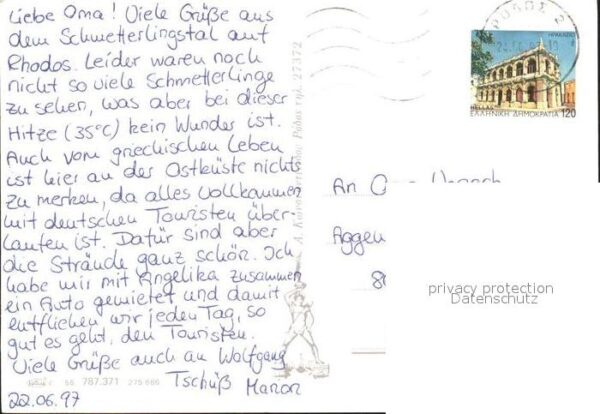 Liebe Oma! Viele Grüße aus
dem Schmetterlingstal auf
Rhodos. Leider waren noch
nicht so viele Schmetterlinge
zu sehen, was aber bei dieser
Hitze (35°C) kein Wunder ist.
Auch vom griechischen Leben
ist hier an der Ostküste nichts
zu merken, da alles vollkommen
mit deutschen Touristen über-
laufen ist. Dafür sind aber
die Strände ganz schön. Ich
habe mir mit Angelika zusammen
ein Auto gemietet und damit
entfliehen wir jeden Tag, so
gut es geht, den Touristen.
Viele Grüße auch an Wolfgang
Tschüß Manon
22.06.97
787.371 275 686
27372
ΡΟΔΟΣ 2
ΗΡΑΚΛΕΙΟ
HELLAS
ΕΛΛΗΝΙΚΗ ΔΗΜΟΚΡΑΤΙΑ 120
An
Aggen
privacy protection
Datenschutz